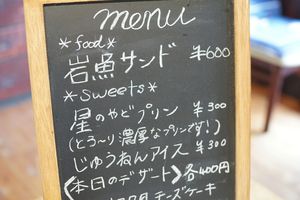 menu
*food*
岩魚サンド ¥600
*sweets*
星のやどプリン ¥300
(とろ〜り濃厚なプリンです!)
じゅうねんアイス ¥300
〈本日のデザート〉各400円
チーズケーキ